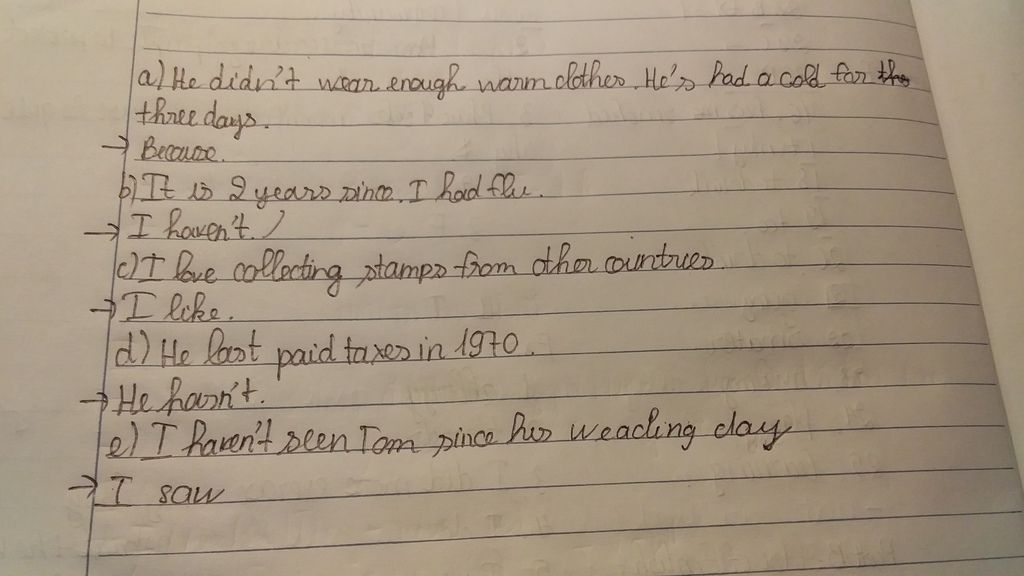 a) He didn't wear enough warm clothes. He's had a cold for the
three days.
→ Because.
b) It is 2 years since. I had flu.
→ I haven't. )
c) I love collecting stamps from other countries.
→ I like.
d) He last paid taxes in 1970.
→ He hasn't.
e) I haven't seen Tom since his weading day
→ I saw